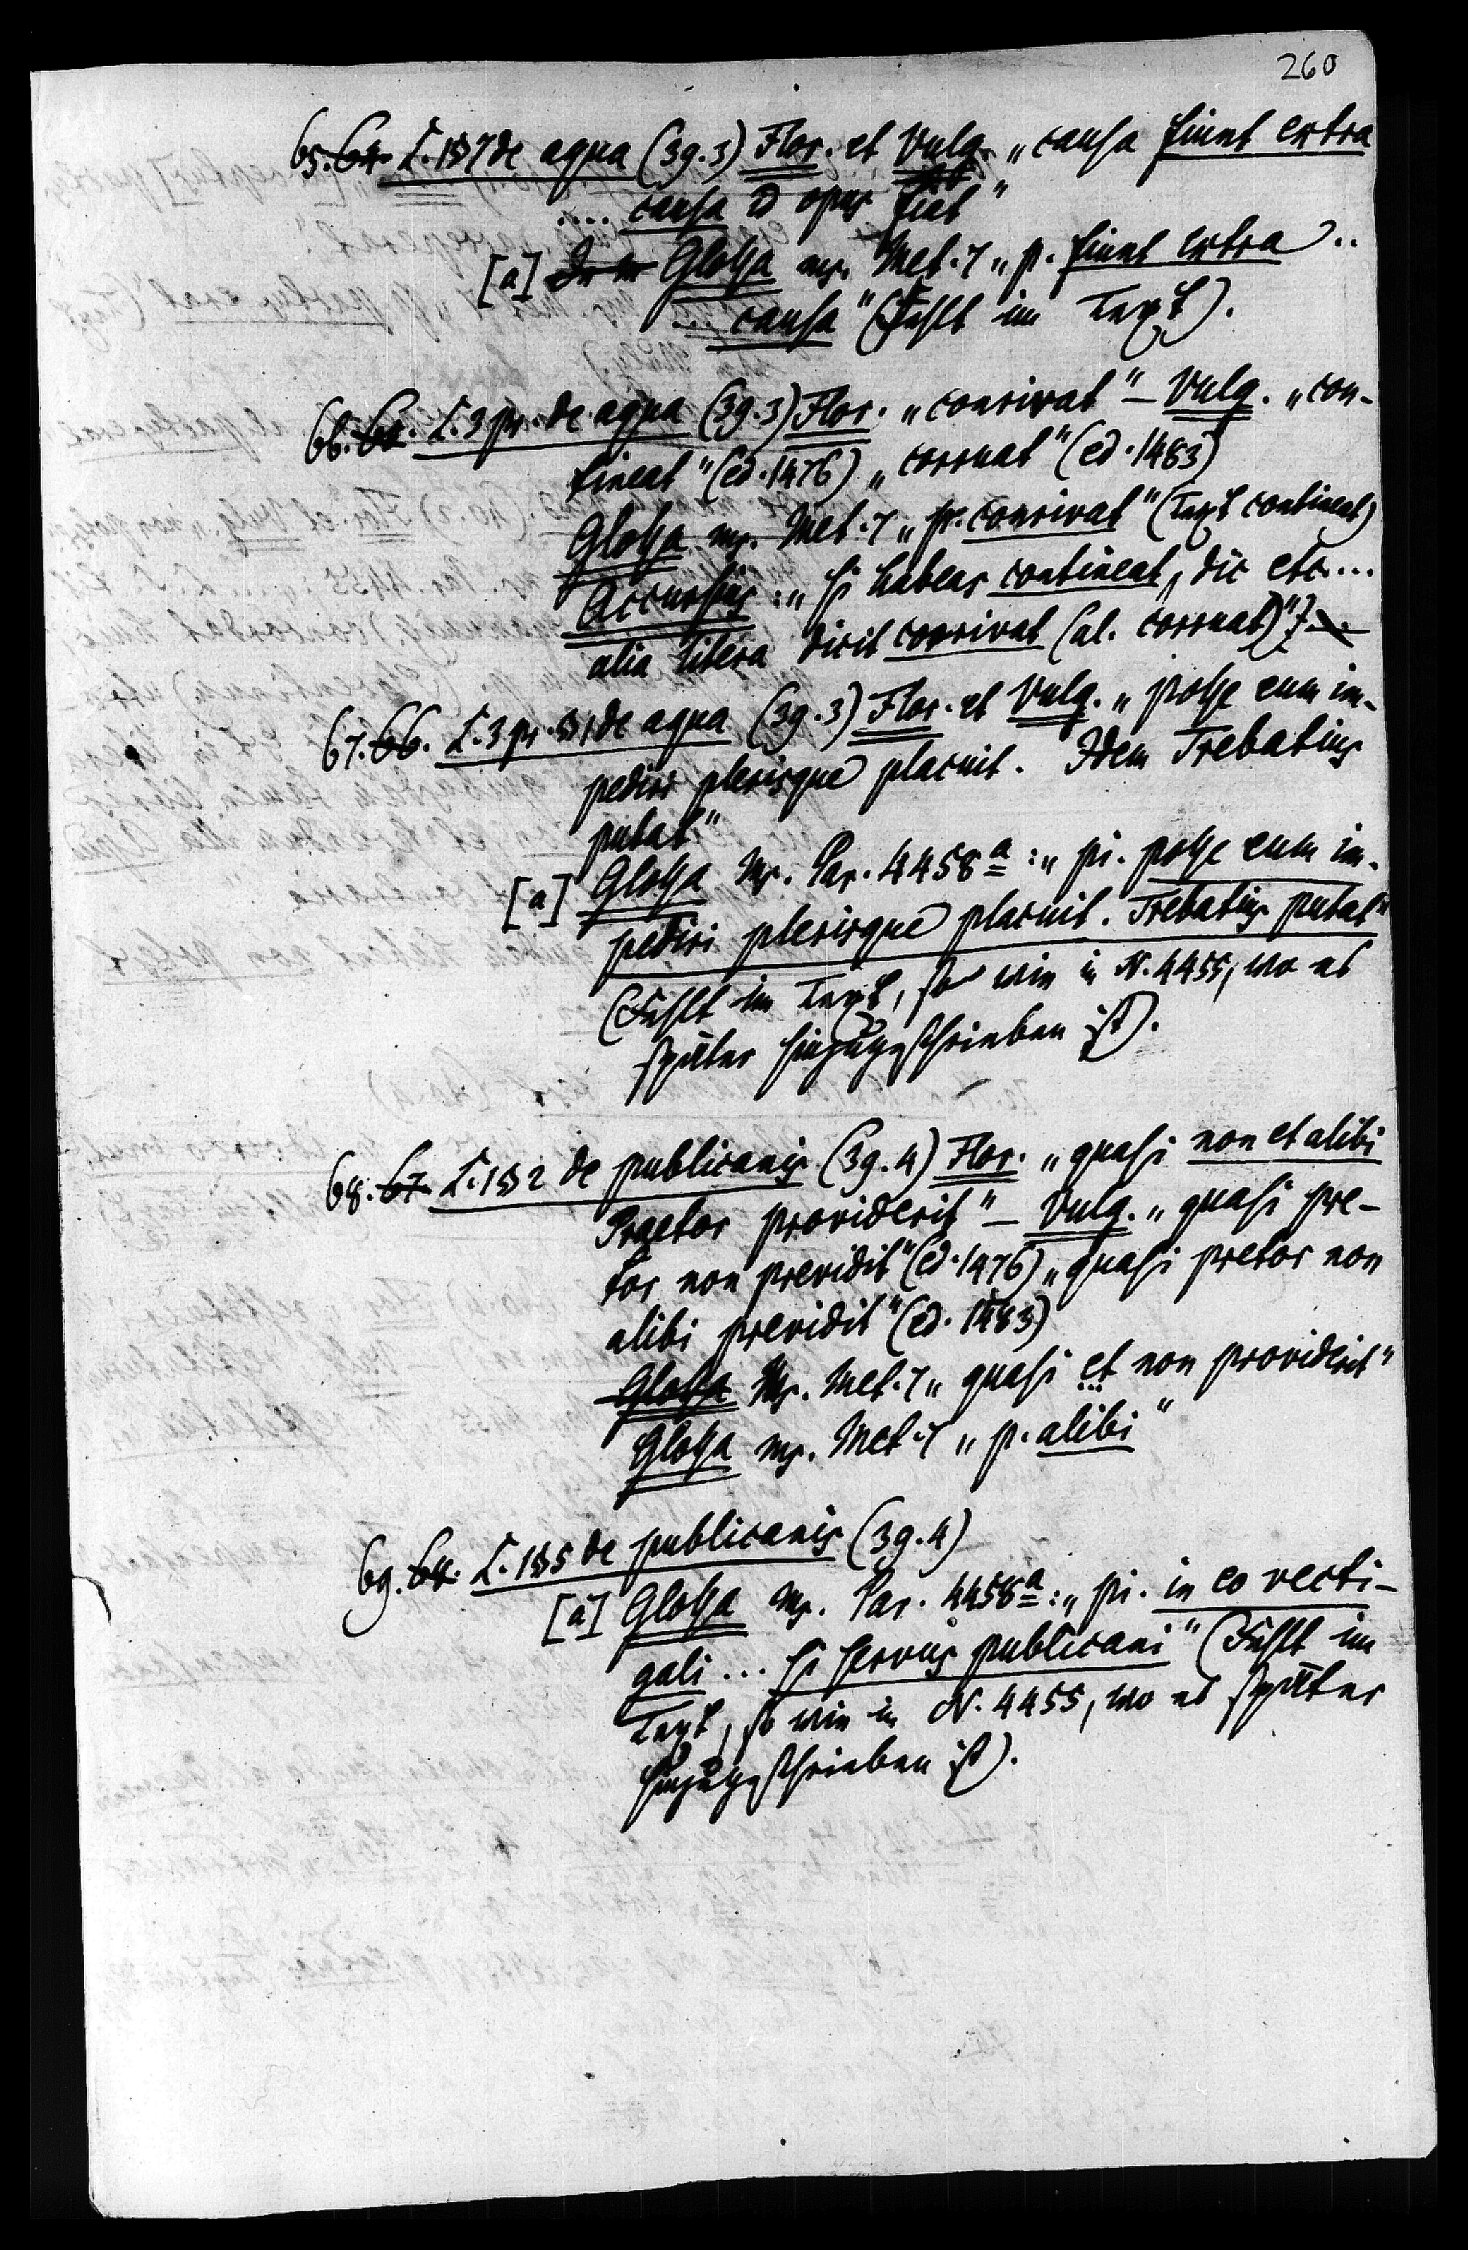 260
65. 64. L. 1 § 7 de aqua (39.3) Flor. et Vulg. „causa fiunt extra
.... causa id opus fiat"
[a] Glossa ms. Met. 7 „p. fiunt extra ..
... causa" (Fehlt im Text).
66. 65. L. 3 pr. de aqua (39.3) Flor. „conrivat" – Vulg. „con-
tineat" (ed. 1476) „corruat" (ed. 1483)
Glossa ms. Met. 7 „pr. conrivat" (Text contineat)
Accursius: „si habeas contineat, dic etc....
alia litera dicit corrivat (al. corruat)"
67. 66. L. 3 pr. § 1 de aqua (39.3) Flor. et Vulg. „posse eum im-
pediri plerisque placuit. Idem Trebatius
putat"
[a] Glossa Ms. Par. 4458a: „pi. posse eum im-
pediri plerisque placuit. Trebatius putat"
(Fehlt im Text, so wie in N. 4455, wo es
später hinzugeschrieben ist).
68. 67. L. 1 § 2 de publicanis (39.4) Flor. „quasi non et alibi
Praetor providerit" – Vulg. „quasi pre-
tor non previdit" (ed. 1476) „quasi pretor non
alibi previdit" (ed. 1483)
Glossa Ms. Met. 7 „quasi et non providerit"
Glossa ms. Met. 7 „p. alibi"
69. 68. L. 1 § 5 de publicanis (39.4)
[a] Glossa Ms. Par. 4458a: „pi. in eo vecti-
gali ... si servus publicani" (Fehlt im
Text, so wie in N. 4455, wo es später
hinzugeschrieben ist).